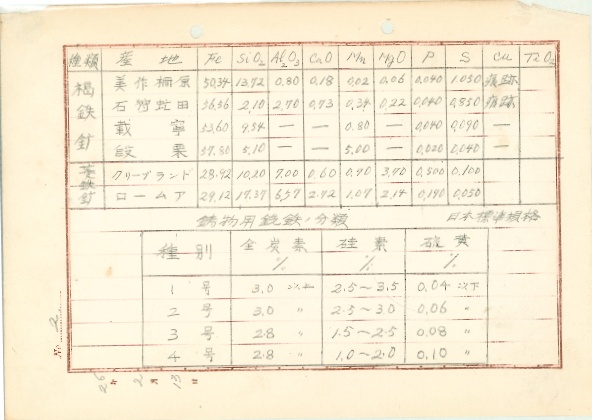 種類 産地 Fe SiO₂ Al₂O₃ CaO Mn MgO P S Cu TiO₂
褐鉄鉱 美作柵原 50.34 13.72 0.80 0.18 0.02 0.06 0.040 1.050 痕跡
石狩虻田 56.56 2.10 2.70 0.73 0.34 0.22 0.040 0.850 痕跡
載寧 53.60 9.54 — — 0.80 — 0.040 0.090 —
殷栗 57.80 5.10 — — 5.00 — 0.020 0.040 —
菱鉄鉱 クリーブランド 28.92 10.20 7.00 0.60 0.70 3.70 0.500 0.100
ロームア 29.12 17.37 6.57 2.72 1.07 2.14 0.190 0.050
鋳物用銑鉄ノ分類 日本標準規格
種別 全炭素 % 硅素 % 硫黄 %
1号 3.0 以上 2.5~3.5 0.04 以下
2号 3.0 〃 2.5~3.0 0.06 〃
3号 2.8 〃 1.5~2.5 0.08 〃
4号 2.8 〃 1.0~2.0 0.10 〃
No. 2
26年2月13日